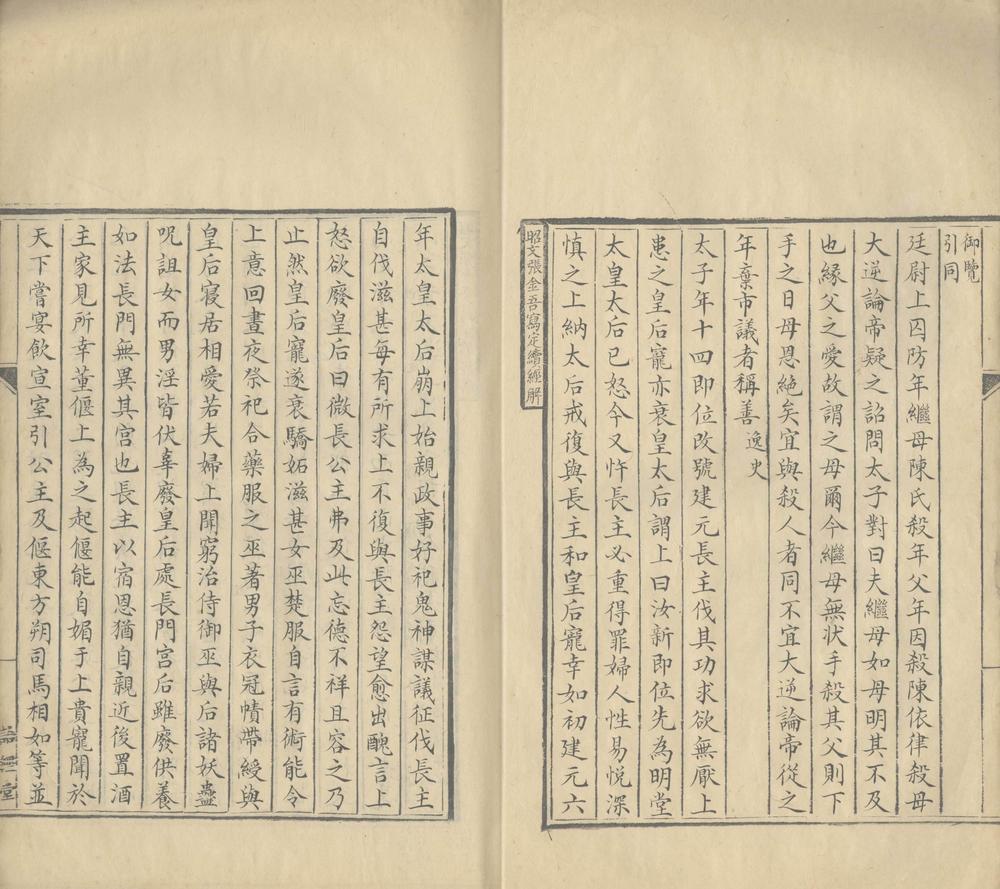 御覽
引同
廷尉上囚防年繼母陳氏殺年父年因殺陳依律殺母
大逆論帝疑之詔問太子對曰夫繼母如母明其不及
也緣父之愛故謂之母爾今繼母無狀手殺其父則下
手之日母恩絕矣宜與殺人者同不宜大逆論帝從之
年棄市議者稱善 逸史
太子年十四即位改號建元長主伐其功求欲無厭上
患之皇后寵亦衰皇太后謂上曰汝新即位先為明堂
太皇太后已怒今又忤長主必重得罪婦人性易悅深
慎之上納太后戒復與長主和皇后寵幸如初建元六
昭文張金吾寫定續經解
年太皇太后崩上始親政事好祀鬼神謀議征伐長主
自伐滋甚每有所求上不復與長主怨望愈出醜言上
怒欲廢皇后曰微長公主弗及此忘德不祥且容之乃
止然皇后寵遂衰驕妬滋甚女巫楚服自言有術能令
上意回晝夜祭祀合藥服之巫著男子衣冠幘帶綬與
皇后寢居相愛若夫婦上聞窮治侍御巫與后諸妖蠱
呪詛女而男淫皆伏辜廢皇后處長門宮后雖廢供養
如法長門無異其宮也長主以宿恩猶自親近後置酒
主家見所幸董偃上為之起偃能自媚于上貴寵聞於
天下嘗宴飲宣室引公主及偃東方朔司馬相如等並